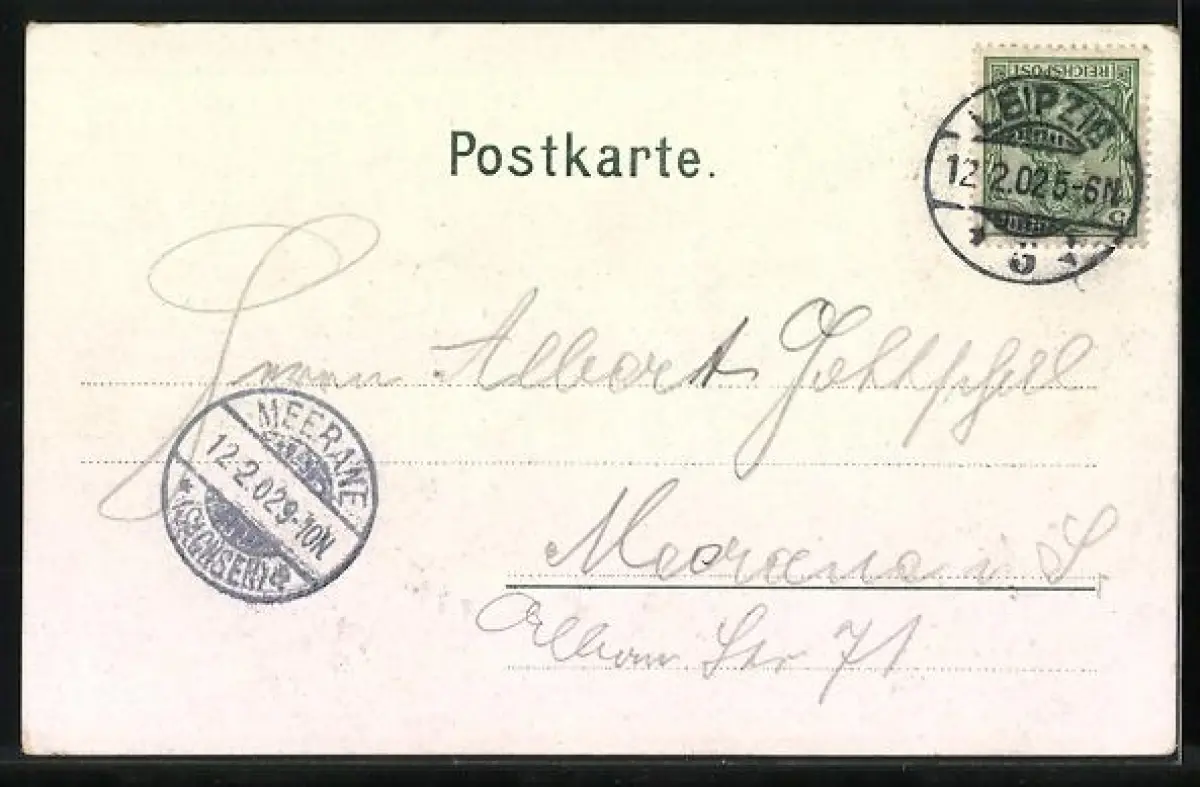 REICHSPOST
5
LEIPZIG
12 2.02 5-6N
* ü *
Postkarte.
Herrn Albert
MEERANE
12.2.02 9-10N
*(SACHSEN)*
Meerane i S.
Str 71